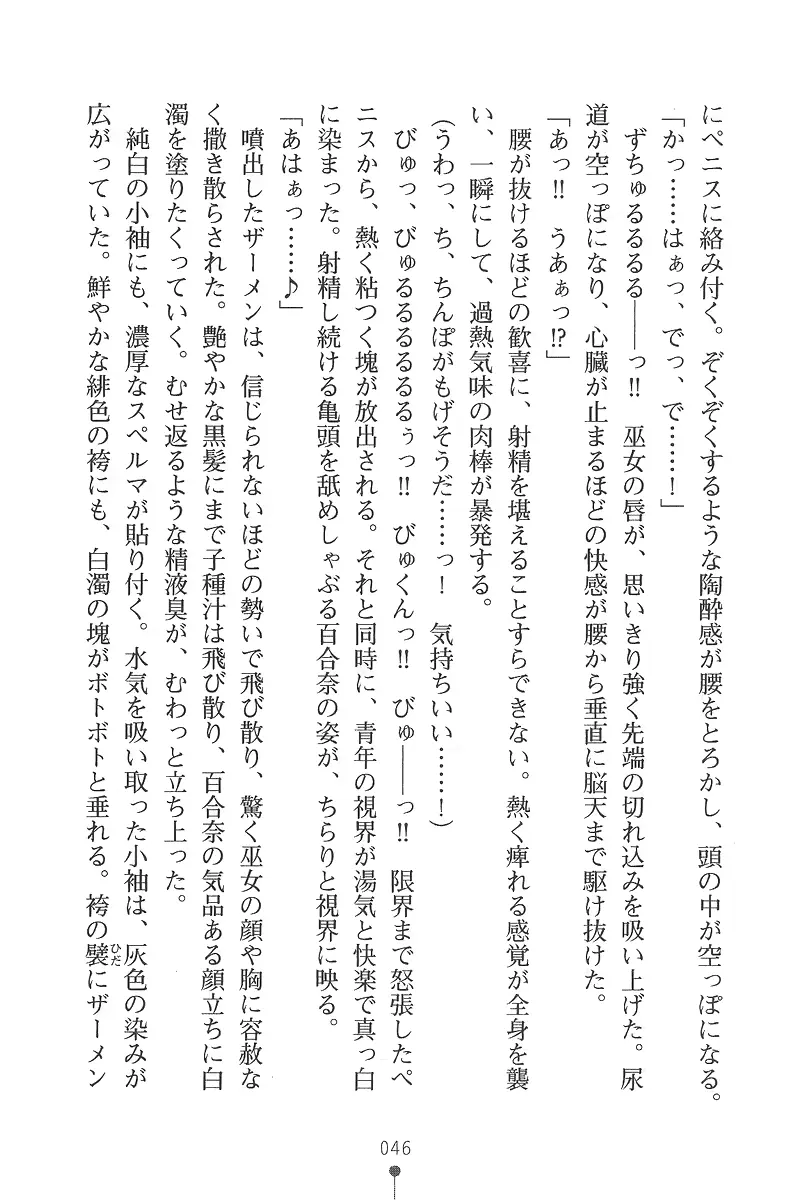 にペニスに絡み付く。ぞくぞくするような陶酔感が腰をとろかし、頭の中が空っぽになる。
「かっ……はぁっ、でっ、で……！」
ずちゅるるるる――っ!!　巫女の唇が、思いきり強く先端の切れ込みを吸い上げた。尿
道が空っぽになり、心臓が止まるほどの快感が腰から垂直に脳天まで駆け抜けた。
「あっ!!　うあぁっ!?」
腰が抜けるほどの歓喜に、射精を堪えることすらできない。熱く痺れる感覚が全身を襲
い、一瞬にして、過熱気味の肉棒が暴発する。
（うわっ、ち、ちんぽがもげそうだ……っ！　気持ちいい……！）
びゅっ、びゅるるるるるぅっ!!　びゅくんっ!!　びゅ――っ!!　限界まで怒張したペ
ニスから、熱く粘つく塊が放出される。それと同時に、青年の視界が湯気と快楽で真っ白
に染まった。射精し続ける亀頭を舐めしゃぶる百合奈の姿が、ちらりと視界に映る。
「あはぁっ……♪」
噴出したザーメンは、信じられないほどの勢いで飛び散り、驚く巫女の顔や胸に容赦な
く撒き散らされた。艶やかな黒髪にまで子種汁は飛び散り、百合奈の気品ある顔立ちに白
濁を塗りたくっていく。むせ返るような精液臭が、むわっと立ち上った。
純白の小袖にも、濃厚なスペルマが貼り付く。水気を吸い取った小袖は、灰色の染みが
広がっていた。鮮やかな緋色の袴にも、白濁の塊がボトボトと垂れる。袴の襞にザーメン
ひだ
046